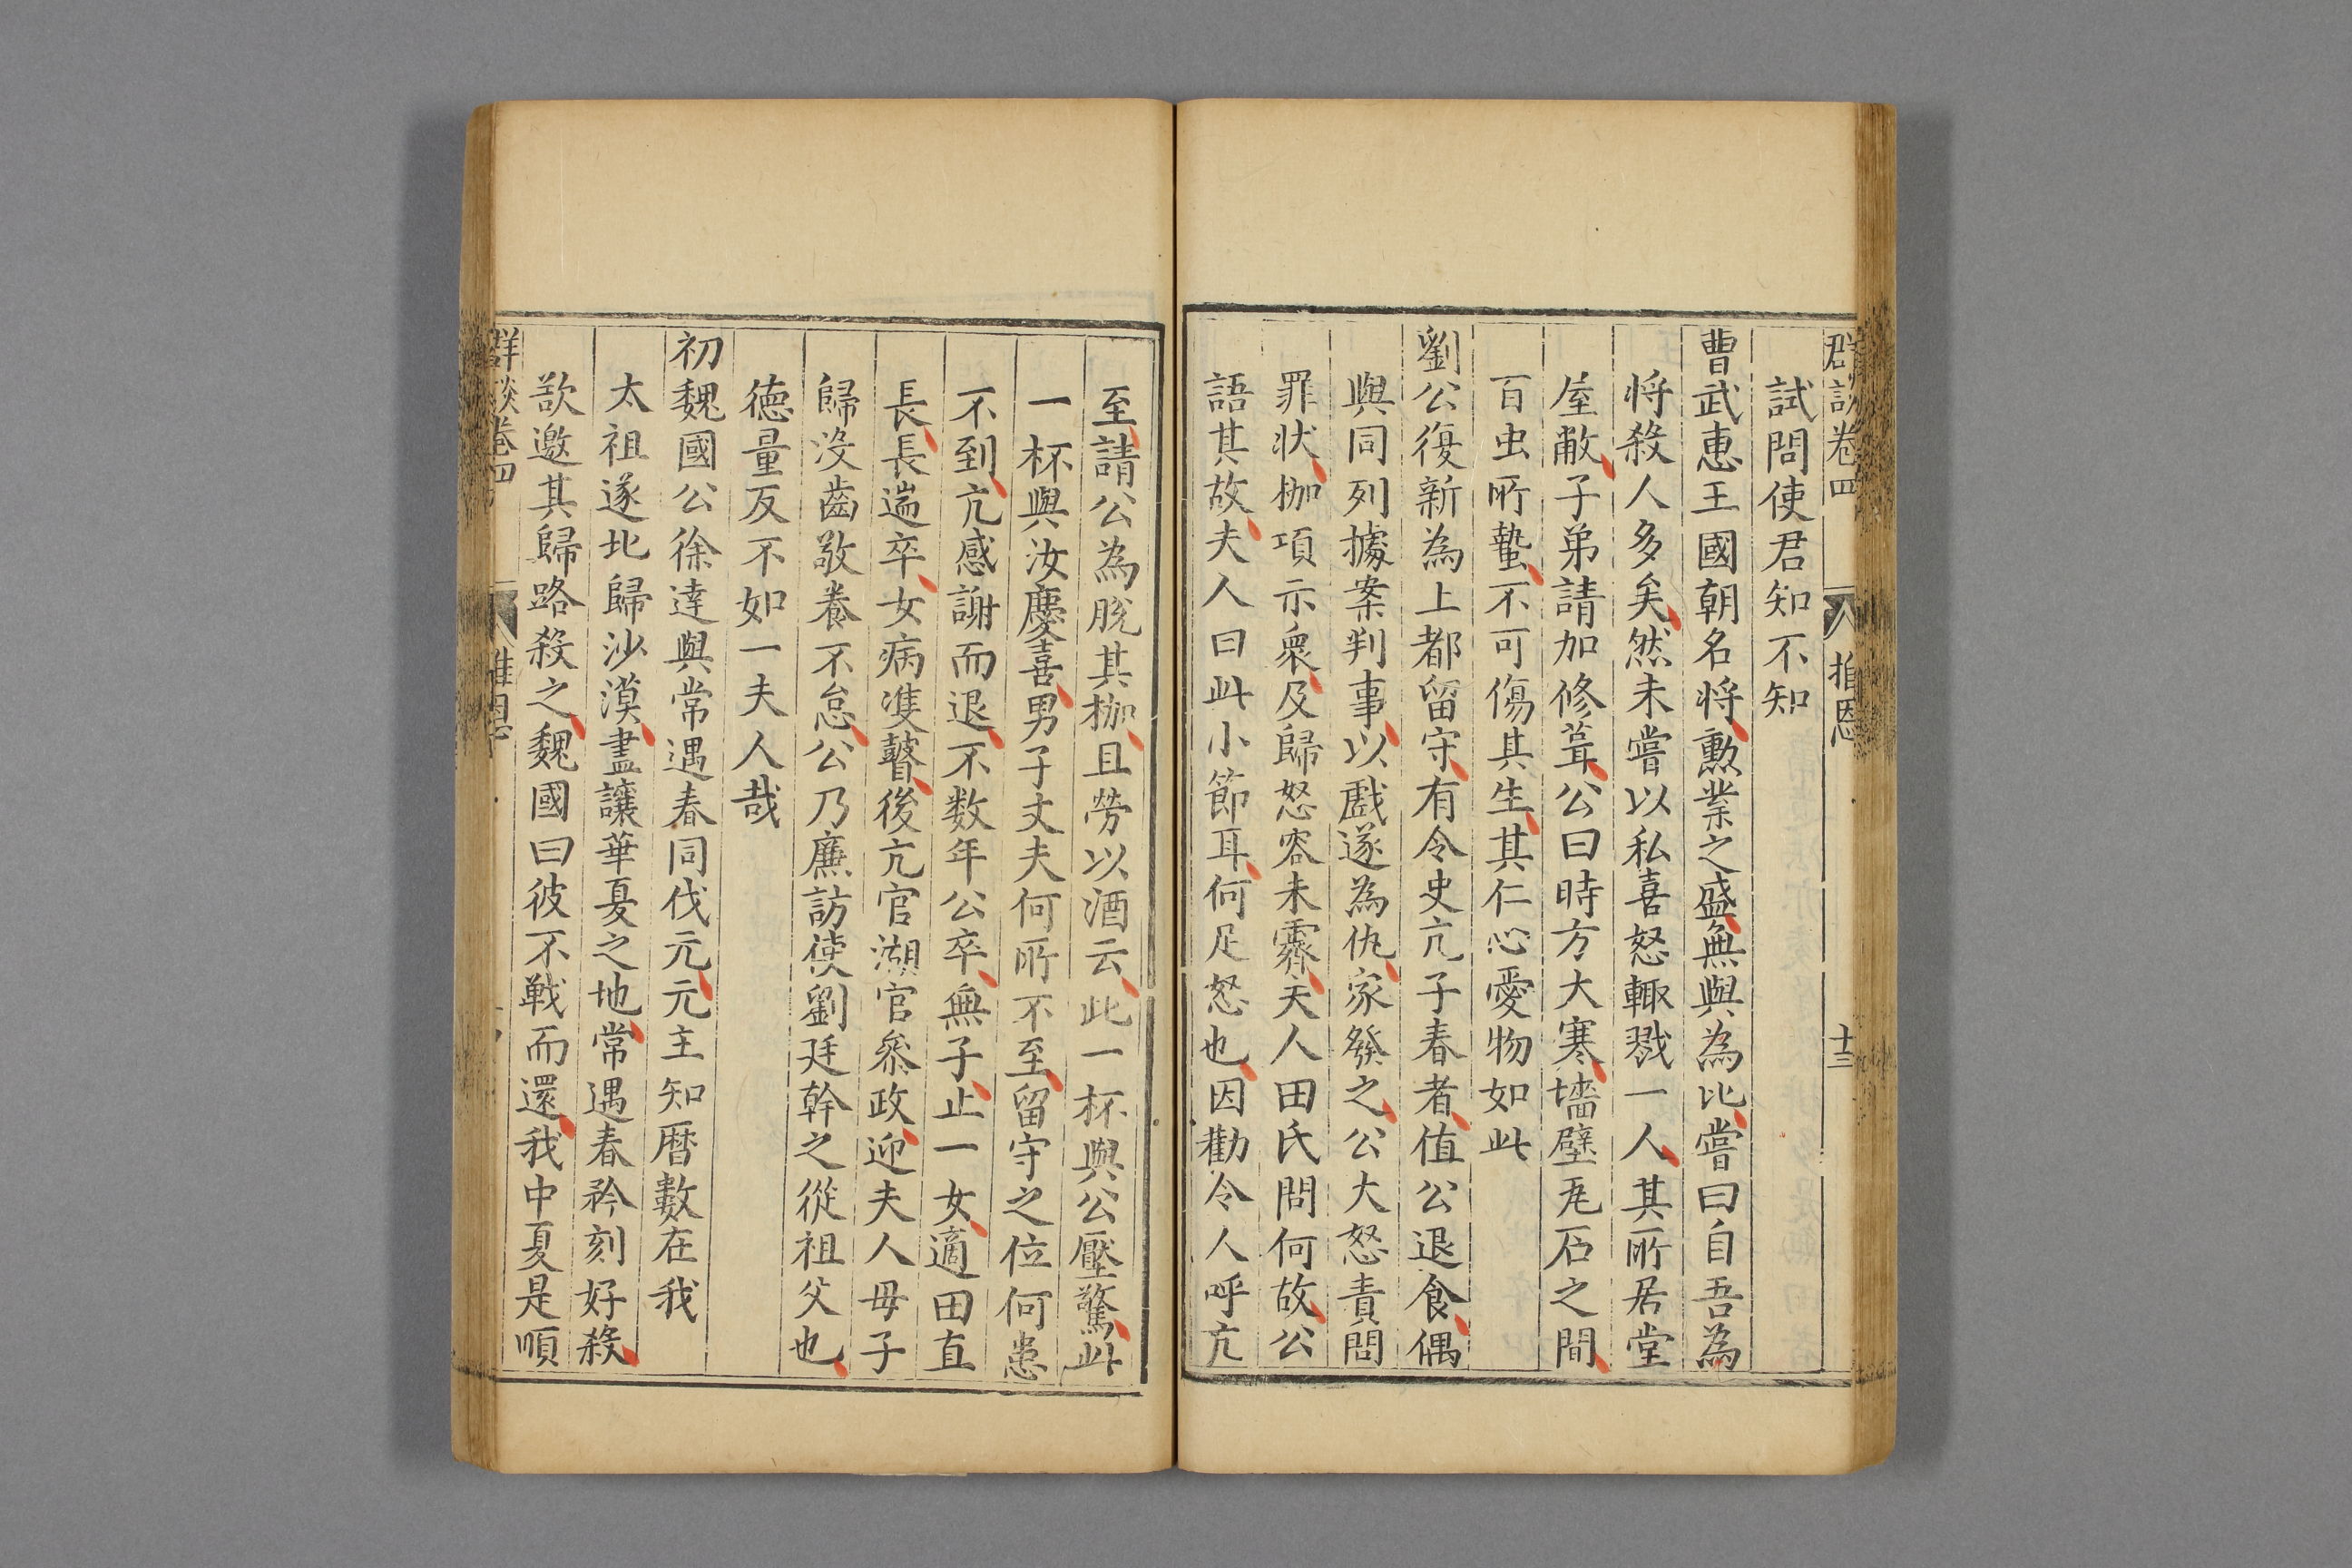 群談卷四
推恩
十三
試問使君知不知
曹武惠王國朝名将勲業之盛無與為比嘗曰自吾為
将殺人多矣然未嘗以私喜怒輙戮一人其所居堂
屋敝子弟請加修葺公曰時方大寒墻壁瓦石之間
百虫所蟄不可傷其生其仁心愛物如此
劉公復新為上都留守有令史亢子春者值公退食偶
與同列據案判事以戯遂為仇家發之公大怒責問
罪状枷項示衆及歸怒容未霽夫人田氏問何故公
語其故夫人曰此小節耳何足怒也因勸令人呼亢
至請公為脫其枷且勞以酒云此一杯與公壓驚此
一杯與汝慶喜男子丈夫何所不至留守之位何患
不到亢感謝而退不数年公卒無子止一女適田直
長長遄卒女病䨇瞽後亢官湖官叅政迎夫人毋子
歸没齒敬養不怠公乃廉訪使劉廷幹之從祖父也
徳量反不如一夫人哉
初魏國公徐逹與常遇春同伐元元主知曆數在我
太祖遂北歸沙漠盡讓華夏之地常遇春矜刻好殺
欲邀其歸路殺之魏國曰彼不戦而還我中夏是順
群談卷四
推恩